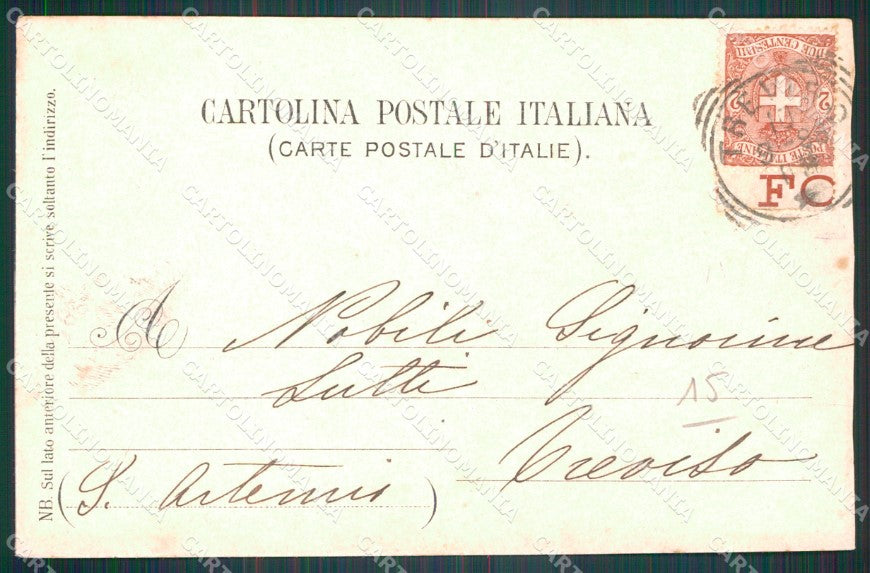 CARTOLINA POSTALE ITALIANA
(CARTE POSTALE D'ITALIE).
NB. Sul lato anteriore della presente si scrive soltanto l'indirizzo.
DUE CENTESIMI
2 2
POSTE ITALIANE
FC
A Nobili Signorine
Lutti
15
Treviso
(S. Artemio)
CARTOLINOMANIA